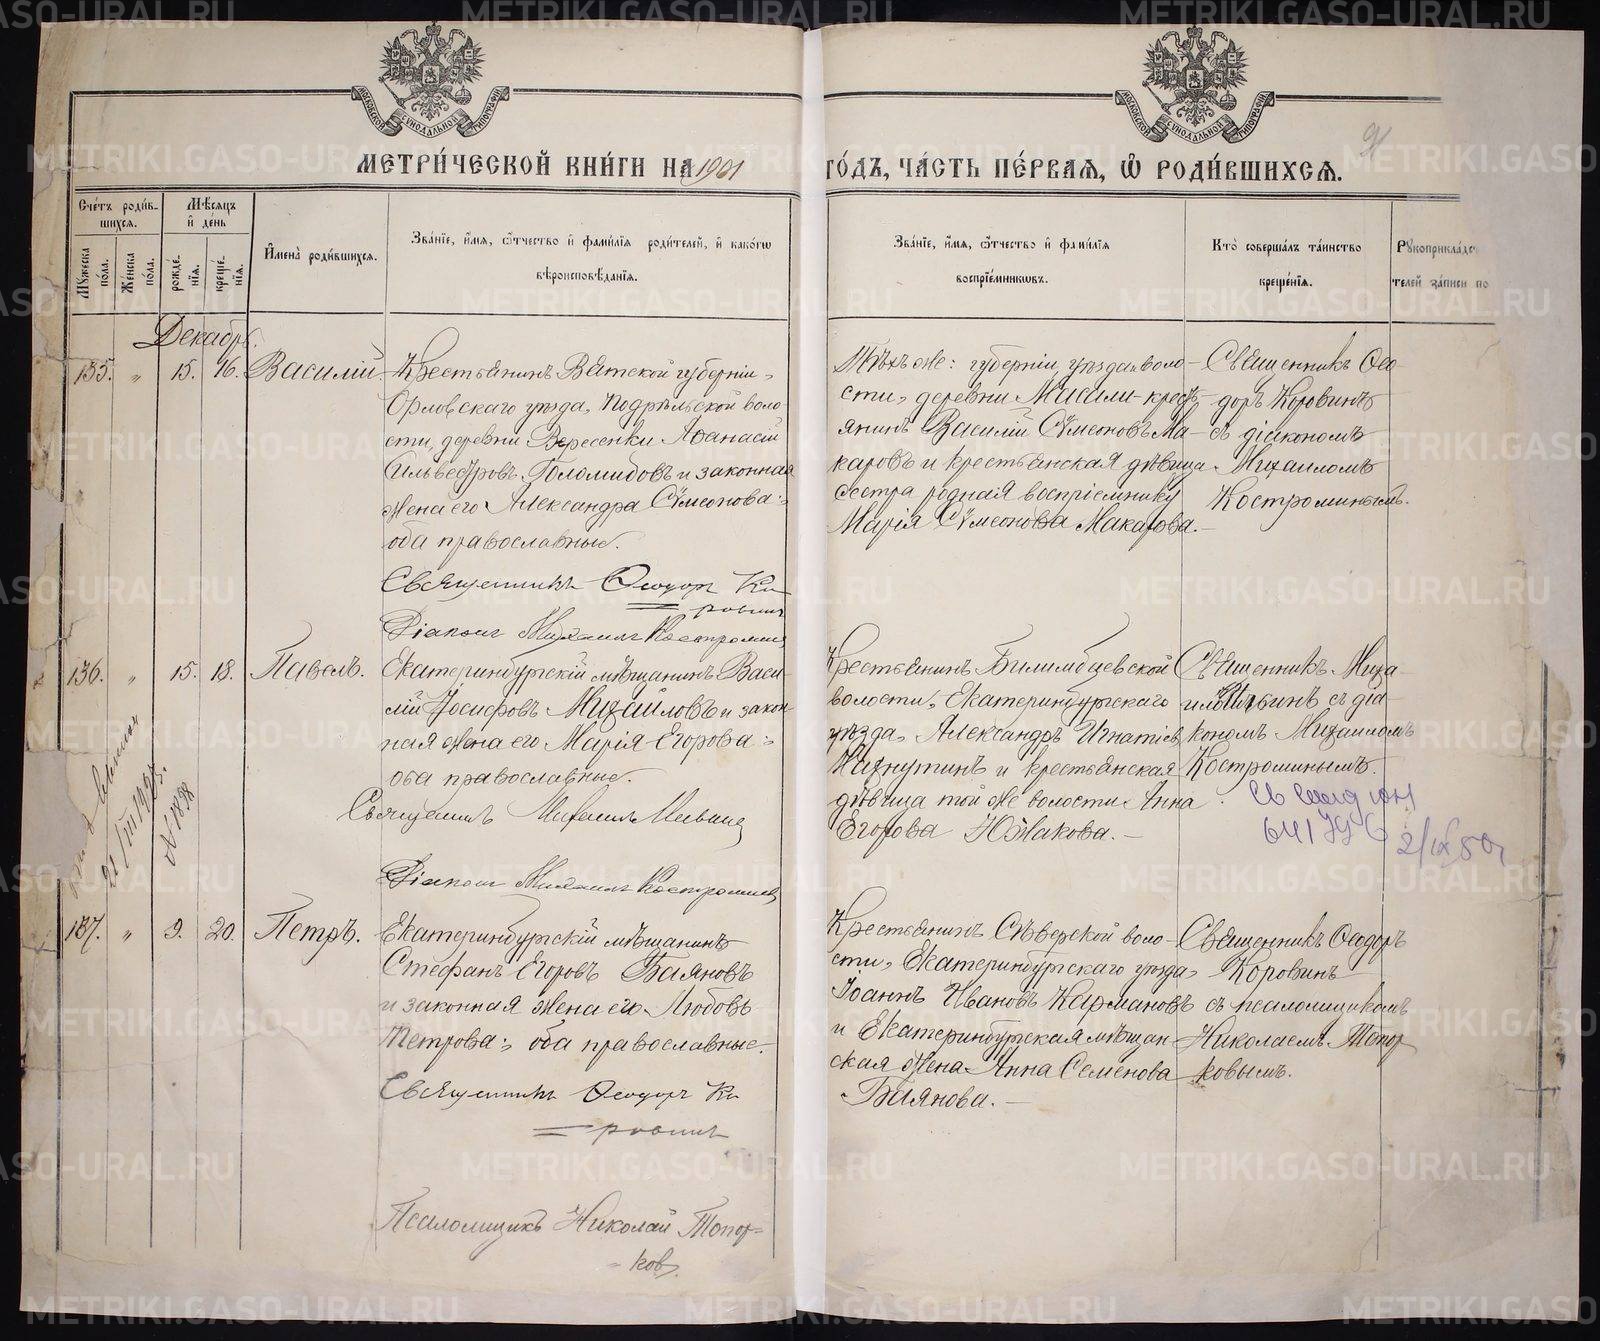 МЕТРИ́ЧЕСКОЙ КНИ́ГИ НА 1901
ГО́ДЪ, ЧА́СТЬ ПЕ́РВАЯ, Ѡ҆ РОДИ́ВШИХСЯ.
91
Сче́тъ роди́в-
шихся.
Мѣ́сяцъ
и҆ де́нь
Мꙋ́жеска
по́ла.
Же́нска
по́ла.
рожде́-
нїя.
креще́-
нїя.
И҆мена̀ роди́вшихся.
Зва́нїе, и҆́мя, ѻ҆́тчество и҆ фами́лїя роди́телей, и҆ како́гѡ
вѣроисповѣ́данїя.
Зва́нїе, и҆́мя, ѻ҆́тчество и҆ фами́лїя
воспрїе́мникѡвъ.
Кто̀ соверша́лъ та́инство
креще́нїя.
Рꙋкоприкла́дс
телей за́писи по
Декабрь.
135. " 15. 16. Василій.
Крестьянинъ Вятской губерніи,
Орловскаго уѣзда, Подрѣльской воло-
сти, деревни Вересенки Аѳанасій
Сильвестровъ Голомидовъ и законная
жена его Александра Сѵмеонова:
оба православные.
Священникъ Ѳеодоръ Ко-
ровинъ
Діаконъ Михаилъ Костроминъ
Тѣхъ же: губерніи, уѣзда и воло-
сти, деревни Масали крестъ-
янинъ Василій Сѵмеоновъ Ма-
каровъ и крестьянская дѣвица
сестра родная воспріемнику
Марія Сѵмеонова Макарова.-
Священникъ Ѳео-
доръ Коровинъ
съ діакономъ
Михаиломъ
Костроминымъ.
136. " 15. 18. Павелъ.
Екатеринбургскій мѣщанинъ Васи-
лій Іосифовъ Михайловъ и закон-
ная жена его Марія Егорова:
оба православные.
Священникъ Михаилъ
Діаконъ Михаилъ Костроминъ
Крестьянинъ Билимбаевской
волости, Екатеринбургскаго
уѣзда, Александръ Игнатіев
и крестьянская
дѣвица той же волости Анна
Егорова Южакова.-
Священникъ Миха-
съ діа-
кономъ Михаиломъ
Костроминымъ.
641796
2/IX 50г
21/III 1925.
N 1898
137. " 9. 20. Петръ.
Екатеринбургскій мѣщанинъ
Стефанъ Егоровъ Баяновъ
и законная жена его Любовь
Петрова: оба православные.
Священникъ Ѳеодоръ Ко-
ровинъ
Псаломщикъ Николай Топор-
ковъ.
Крестьянинъ Сѣверской воло-
сти, Екатеринбургскаго уѣзда,
Іоаннъ Ивановъ Кармановъ
и Екатеринбургская мѣщан-
ская жена Анна Семенова
Баянова.-
Священникъ Ѳеодоръ
Коровинъ
съ псаломщикомъ
Николаемъ Топор-
ковымъ.
METRIKI.GASO-URAL.RU